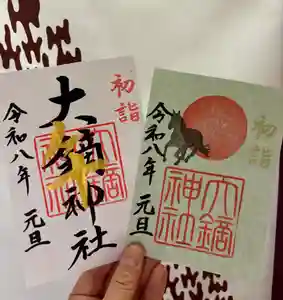 初詣
大鏑神社
令和八年 元旦
大鏑神社
初詣
令和八年 元旦
大鏑神社